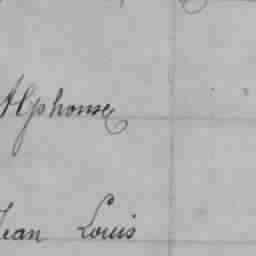 Alphonse
Jean Louis